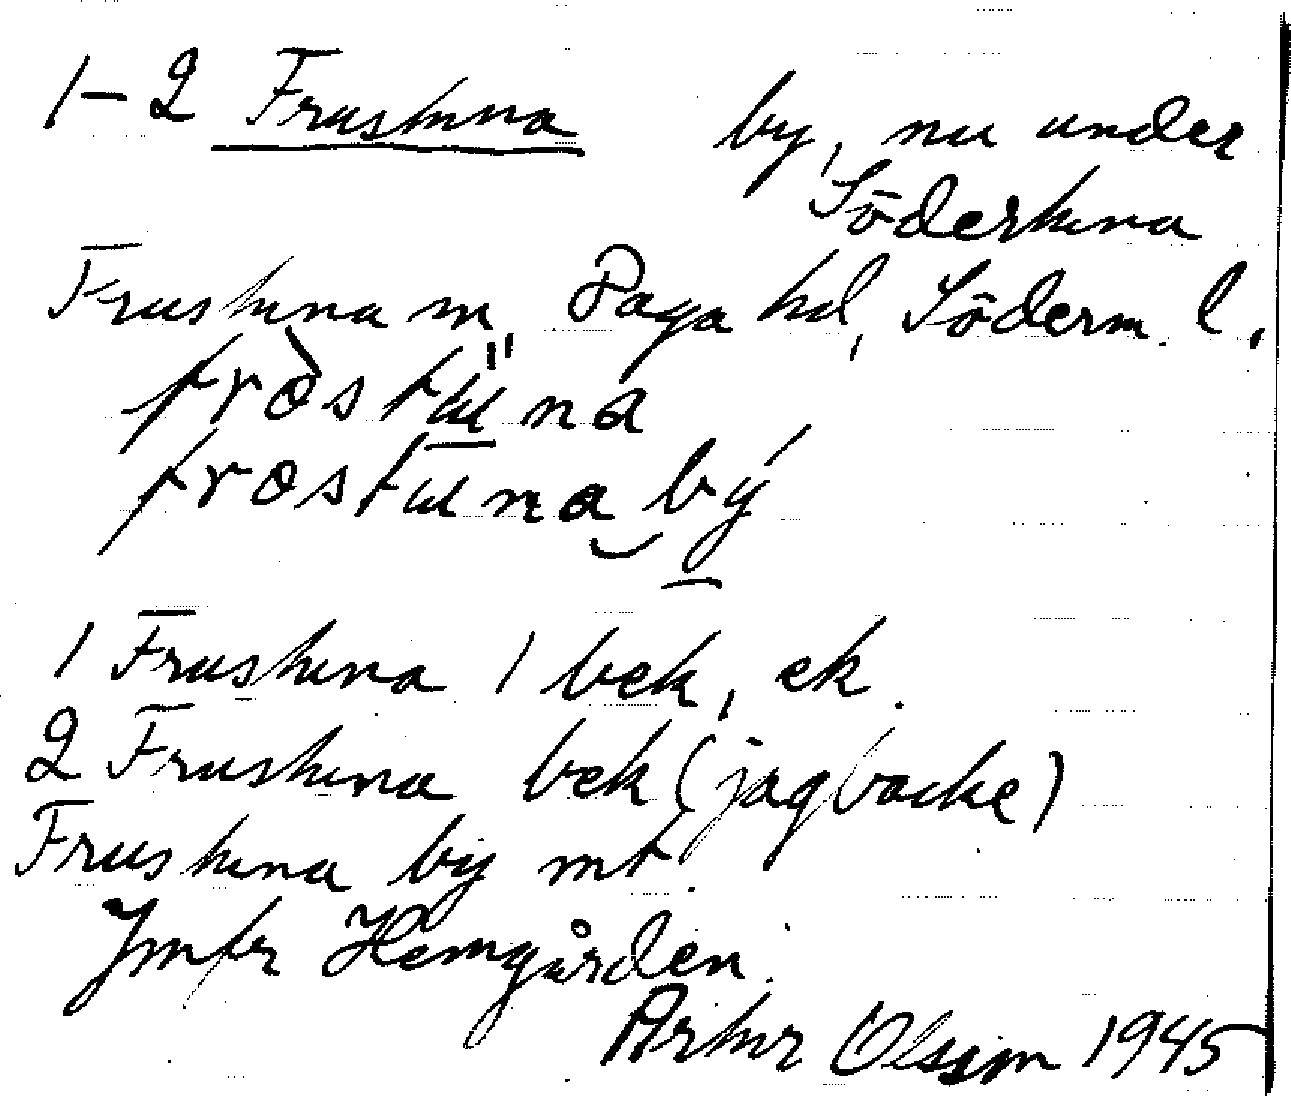 1-2 Frustuna by, nu under
Södertuna
Frustuna sn, Daga hd, Söderm. l.
fròstu̎na
frostuna bý
1 Frustuna 1 bek, ek.
2 Frustuna bek (jag backe)
Frustuna by mt.
Jmfr Hemgården.
Artur Olsson 1945